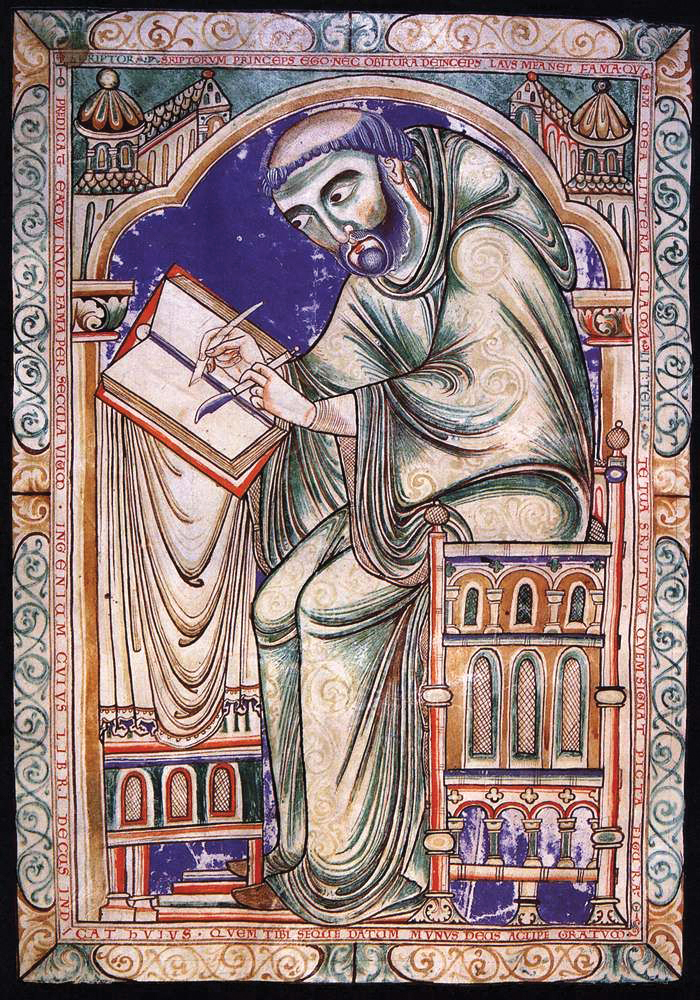 SCRIPTOR SCRIPTORVM PRINCEPS EGO NEC OBITVRA DEINCEPS LAVS MEA NEC FAMA · QVIS
SIM MEA LITTERA CLAMA · LITTERA · TE TVA SCRIPTVRA QVEM SIGNAT PICTA FIGVRA
PREDICAT EADWINVM FAMA PER SECVLA VIVVM · INGENIVM CVIVS LIBRI DECVS IND
ICAT HVIVS · QVEM TIBI SEQVE DATVM MVNVS DEVS ACCIPE GRATVM ·